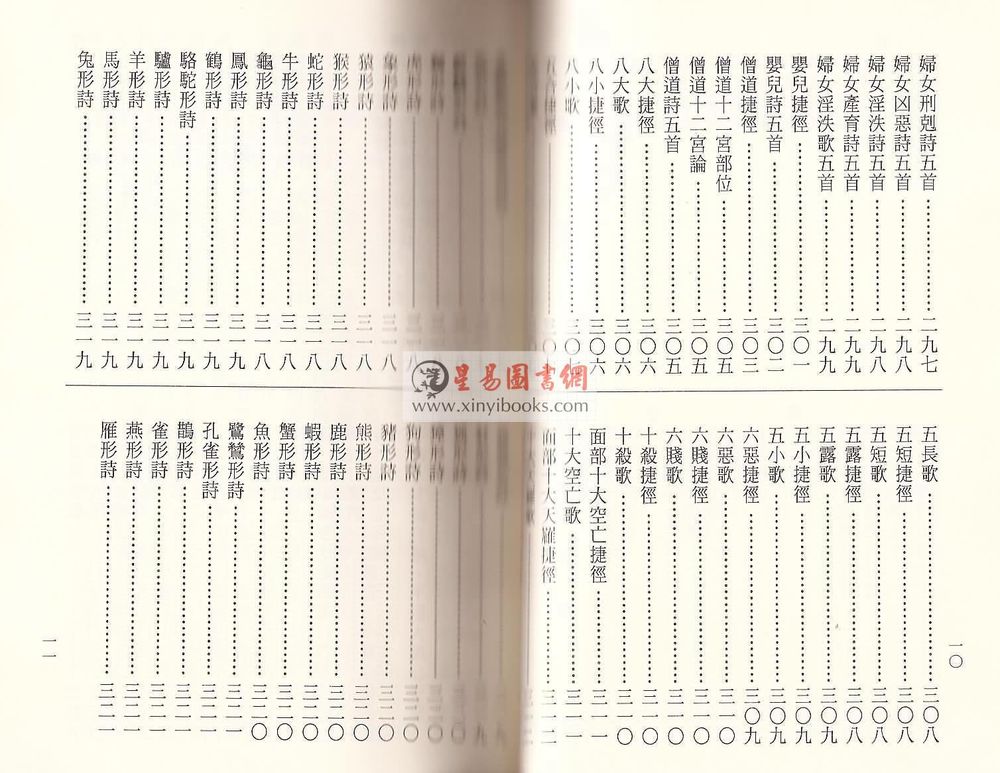 婦女刑剋詩五首……二九七
婦女凶惡詩五首……二九八
婦女淫泆詩五首……二九八
婦女產育詩五首……二九九
婦女淫泆歌五首……二九九
嬰兒捷徑……三〇一
嬰兒詩五首……三〇二
僧道捷徑……三〇三
僧道十二宮部位……三〇五
僧道十二宮論……三〇五
僧道詩五首……三〇五
八大捷徑……三〇六
八大歌……三〇六
八小捷徑……三〇六
八小歌……三〇七
五長歌……三〇八
五短捷徑……三〇八
五短歌……三〇八
五露捷徑……三〇八
五露歌……三〇九
五小捷徑……三〇九
五小歌……三〇九
六惡捷徑……三〇九
六惡歌……三一〇
六賤捷徑……三一〇
六賤歌……三一〇
十殺捷徑……三一〇
十殺歌……三一〇
面部十大空亡捷徑……三一一
十大空亡歌……三一一
面部十大天羅捷徑……三一二
一〇
虎形詩
象形詩……三一八
猿形詩……三一八
猴形詩……三一八
蛇形詩……三一八
牛形詩……三一八
龜形詩……三一八
鳳形詩……三一九
鶴形詩……三一九
駱駝形詩……三一九
驢形詩……三一九
羊形詩……三一九
馬形詩……三一九
兔形詩……三一九
狗形詩……三二〇
豬形詩……三二〇
熊形詩……三二〇
鹿形詩……三二〇
蝦形詩……三二〇
蟹形詩……三二〇
魚形詩……三二〇
鷺鷥形詩……三二一
孔雀形詩……三二一
鵲形詩……三二一
雀形詩……三二一
燕形詩……三二一
雁形詩……三二一
一一
星易圖書網
www.xinyibooks.com